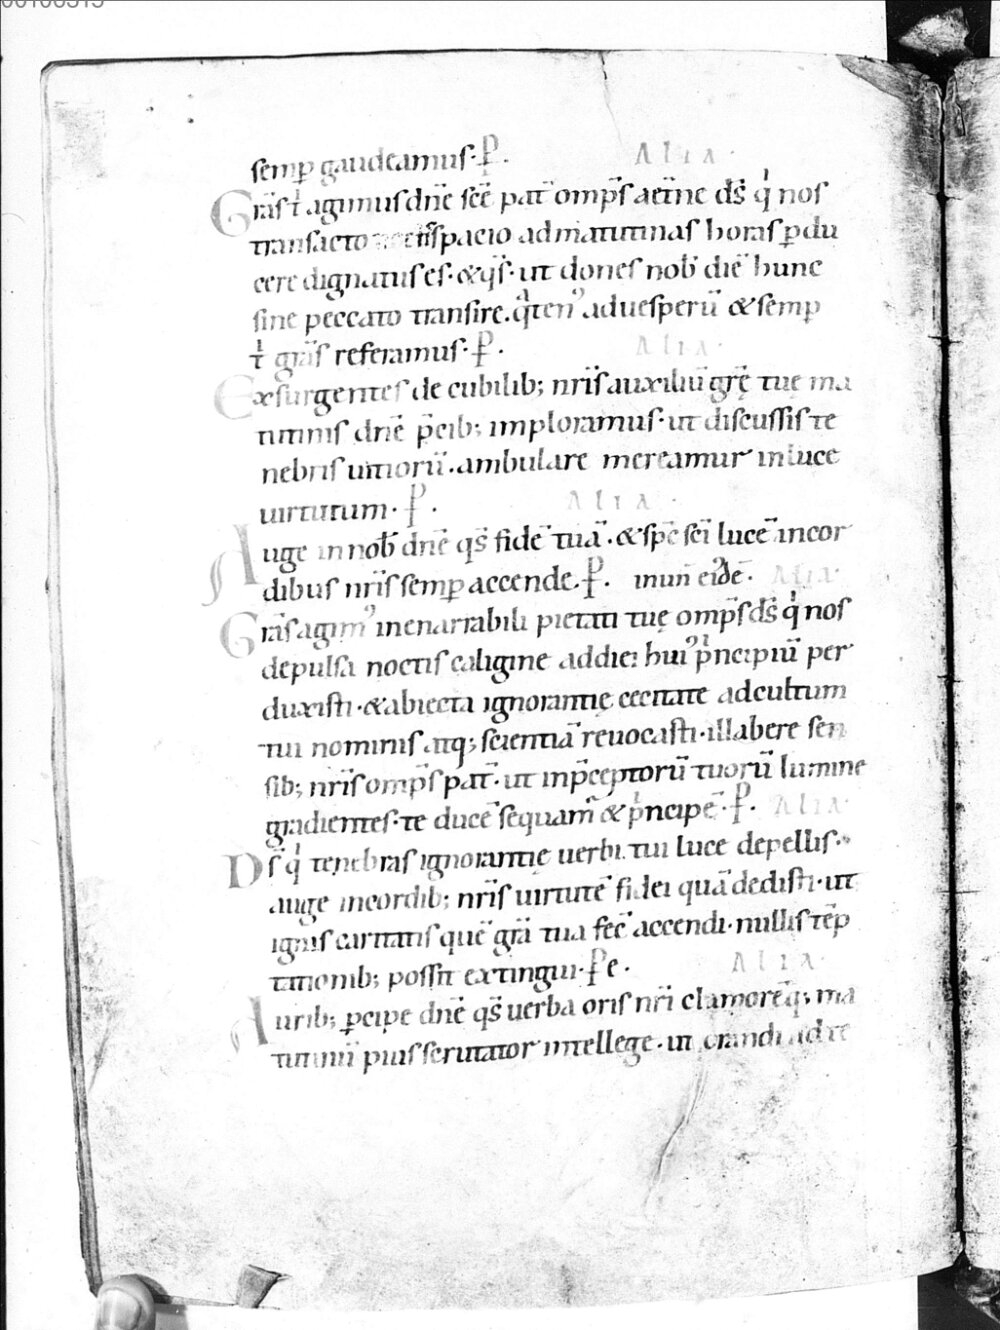 semꝑ gaudeamus· P̄. Alia·
Gr̄as t̄ agimus dn̄e sc̄e pat̄ omp̄s aet̄ne ds̄ qͥ nos
transacto spacio ad matutinas horas ꝑdu
cere dignatus es· & qs̄· ut dones nob̄ diē hunc
sine peccato transire. qͣten᾽ ad uesperū & semꝑ
t̄ gr̄as referamus· P̄. Alia·
Exsurgentes de cubilib; nr̄is auxiliū gr̄ę tuę ma
tutinis dn̄e p̄cib; imploramus· ut discussis te
nebris uitiorū. ambulare mereamur in luce
uirtutum· P̄. Alia·
Auge in nob̄ dn̄e qs̄ fidē tuā. & sp̄c sc̄i lucē in cor
dibus nr̄is semꝑ accende. P̄. Alia·
Gr̄as agim᾽ inenarrabili pietati tuę omp̄s ds̄ qͥ nos
depulsa noctis caligine ad diei hui᾽ pͥncipiū per
duxisti· & abiecta ignorantię cecitate ad cultum
tui nominis atq; scientiā reuocasti· illabere sen
sib; nr̄is omp̄s pat̄· ut in p̄ceptorū tuorū lumine
gradientes· te ducē sequam̄ & pͥncipē· P̄. Alia·
Ds̄ qͥ tenebras ignorantię uerbi tui luce depellis·
auge in cordib; nr̄is uirtutē fidei quā dedisti· ut
ignis caritatis quē gr̄a tua fec̄ accendi· nullis tēp
tationib; possit extingui· P̄e. Alia·
Aurib; ꝑcipe dn̄e qs̄ uerba oris nr̄i clamorēq; ma
tutinū pius scrutator intellege· ut orandi ad te